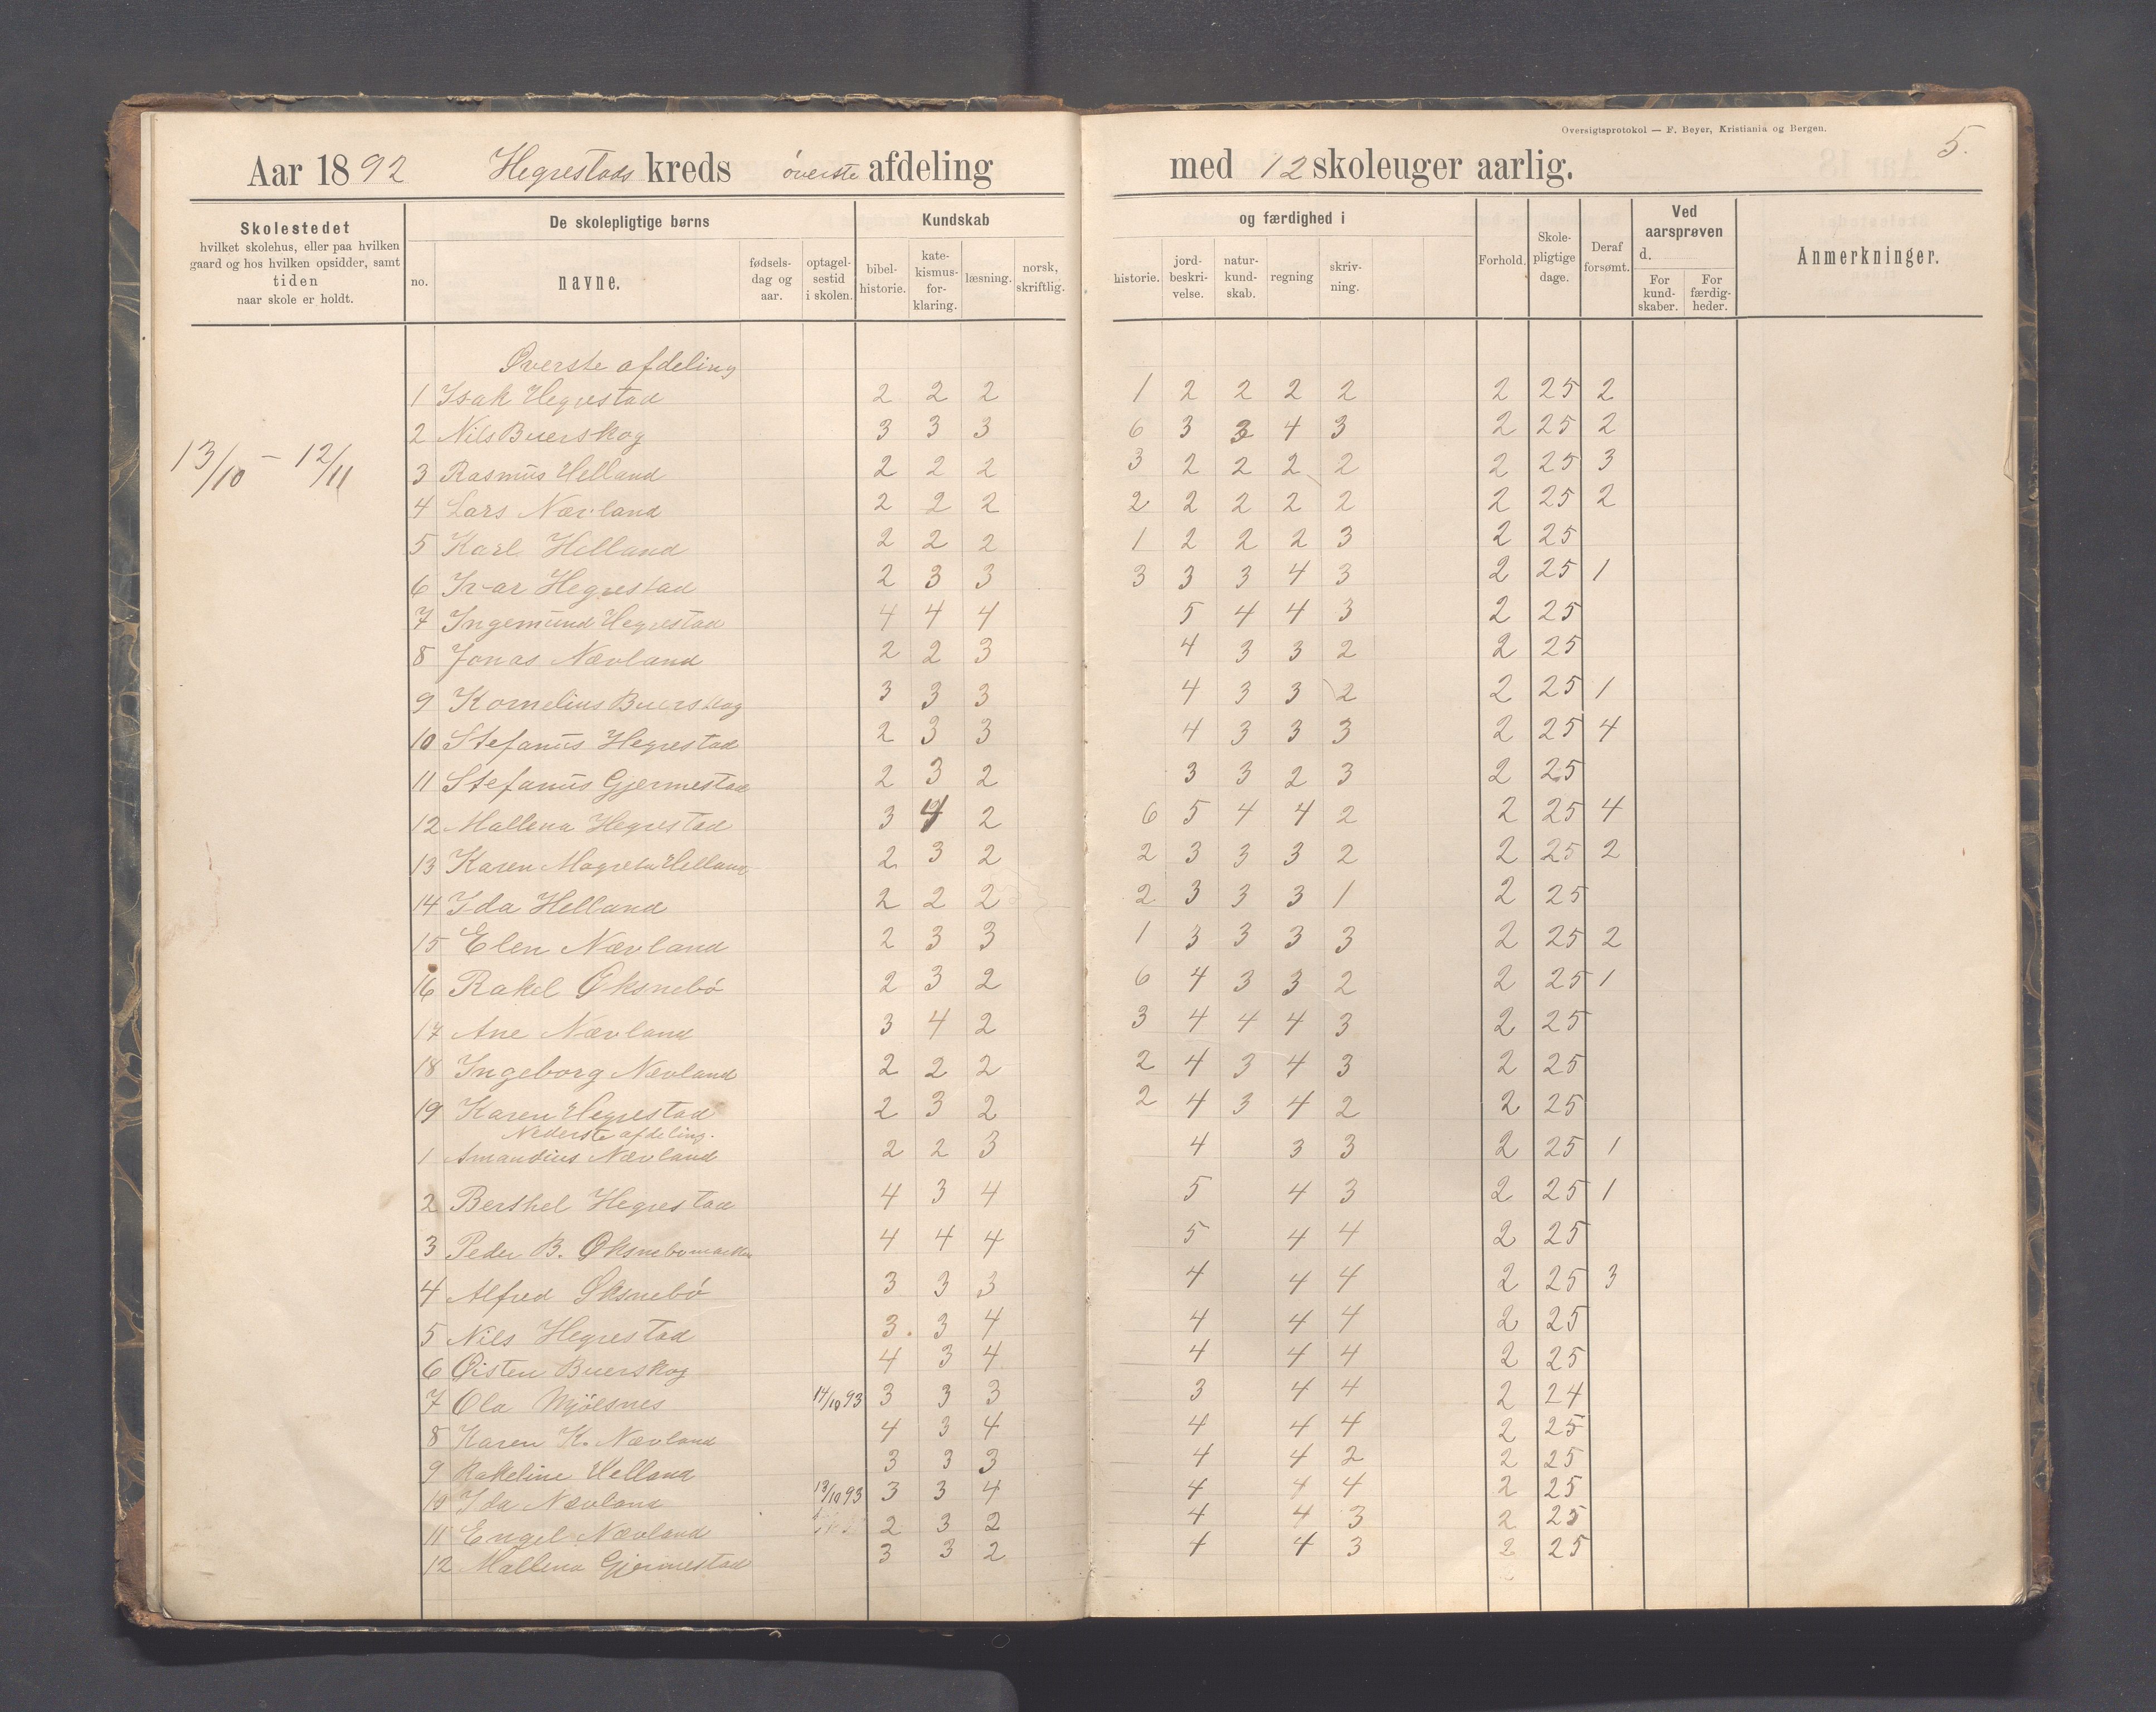 Oversigtsprotokol — F. Beyer, Kristiania og Bergen.
5.
Aar 1892 Hegrestads kreds överste afdeling med 12 skoleuger aarlig.
Skolestedet hvilket skolehus, eller paa hvilken gaard og hos hvilken opsidder, samt tiden naar skole er holdt.
De skolepligtige børns
no. navne. fødsels-dag og aar. optagel-sestid i skolen.
Kundskab og færdighed i
bibel-historie. kate-kismus-for-klaring. læsning. norsk, skriftlig. historie. jord-beskri-velse. natur-kund-skab. regning skriv-ning.
Forhold. Skole-pligtige dage. Deraf forsømt.
Ved aarsprøven d.
For kund-skaber. For færdig-heder.
Anmerkninger.
Øverste afdeling
13/10 – 12/11
1 Isak Hegrestad 2 2 2 1 2 2 2 2 2 25 2
2 Nils Buerskog 3 3 3 6 3 3 4 3 2 25 2
3 Rasmus Helland 2 2 2 3 2 2 2 2 2 25 3
4 Lars Nævland 2 2 2 2 2 2 2 2 2 25 2
5 Karl Helland 2 2 2 1 2 2 2 3 2 25
6 Ivar Hegrestad 2 3 3 3 3 3 4 3 2 25 1
7 Ingemund Hegrestad 4 4 4 5 4 4 3 2 25
8 Jonas Nævland 2 2 3 4 3 3 2 2 25
9 Kornelius Buerskog 3 3 3 4 3 3 2 2 25 1
10 Stefanus Hegrestad 2 3 3 4 3 3 3 2 25 4
11 Stefanus Gjermestad 2 3 2 3 3 2 3 2 25
12 Mallena Hegrestad 3 4 2 6 5 4 4 2 2 25 4
13 Karen Magreta Helland 2 3 2 2 3 3 3 2 2 25 2
14 Ida Helland 2 2 2 2 3 3 3 1 2 25
15 Elen Nævland 2 3 3 1 3 3 3 3 2 25 2
16 Rakel Øksnebö 2 3 2 6 4 3 3 2 2 25 1
17 Ane Nævland 3 4 2 3 4 4 4 3 2 25
18 Ingeborg Nævland 2 2 2 2 4 3 4 3 2 25
19 Karen Hegrestad 2 3 2 2 4 3 4 2 2 25
Nederste afdeling.
1 Amandius Nævland 2 2 3 4 3 3 2 25 1
2 Berthel Hegrestad 4 3 4 5 4 3 2 25 1
3 Peder B. Øksnebomarken 4 4 4 5 4 4 2 25
4 Alfred Øksnebö 3 3 3 4 4 4 2 25 3
5 Nils Hegrestad 3. 3 4 4 4 4 2 25
6 Øisten Buerskog 4 3 4 4 4 4 2 25
7 Ola Mjölsnes 14/10 93 3 3 3 3 4 4 2 24
8 Karen K. Nævland 4 3 4 4 4 4 2 25
9 Rakeline Helland 3 3 3 4 4 2 2 25
10 Ida Nævland 13/10 93 3 3 4 4 4 4 2 25
11 Engel Nævland 2 3 2 4 4 3 2 25
12 Mallena Gjermestad 3 3 2 4 4 3 2 25